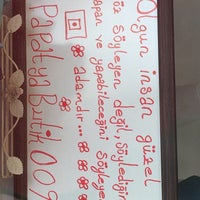 Olgun insan güzel
söz söyleyen değil, söylediğini
yapan ve yapabileceğini söyleyen
adamdır...
Papatya Butik009